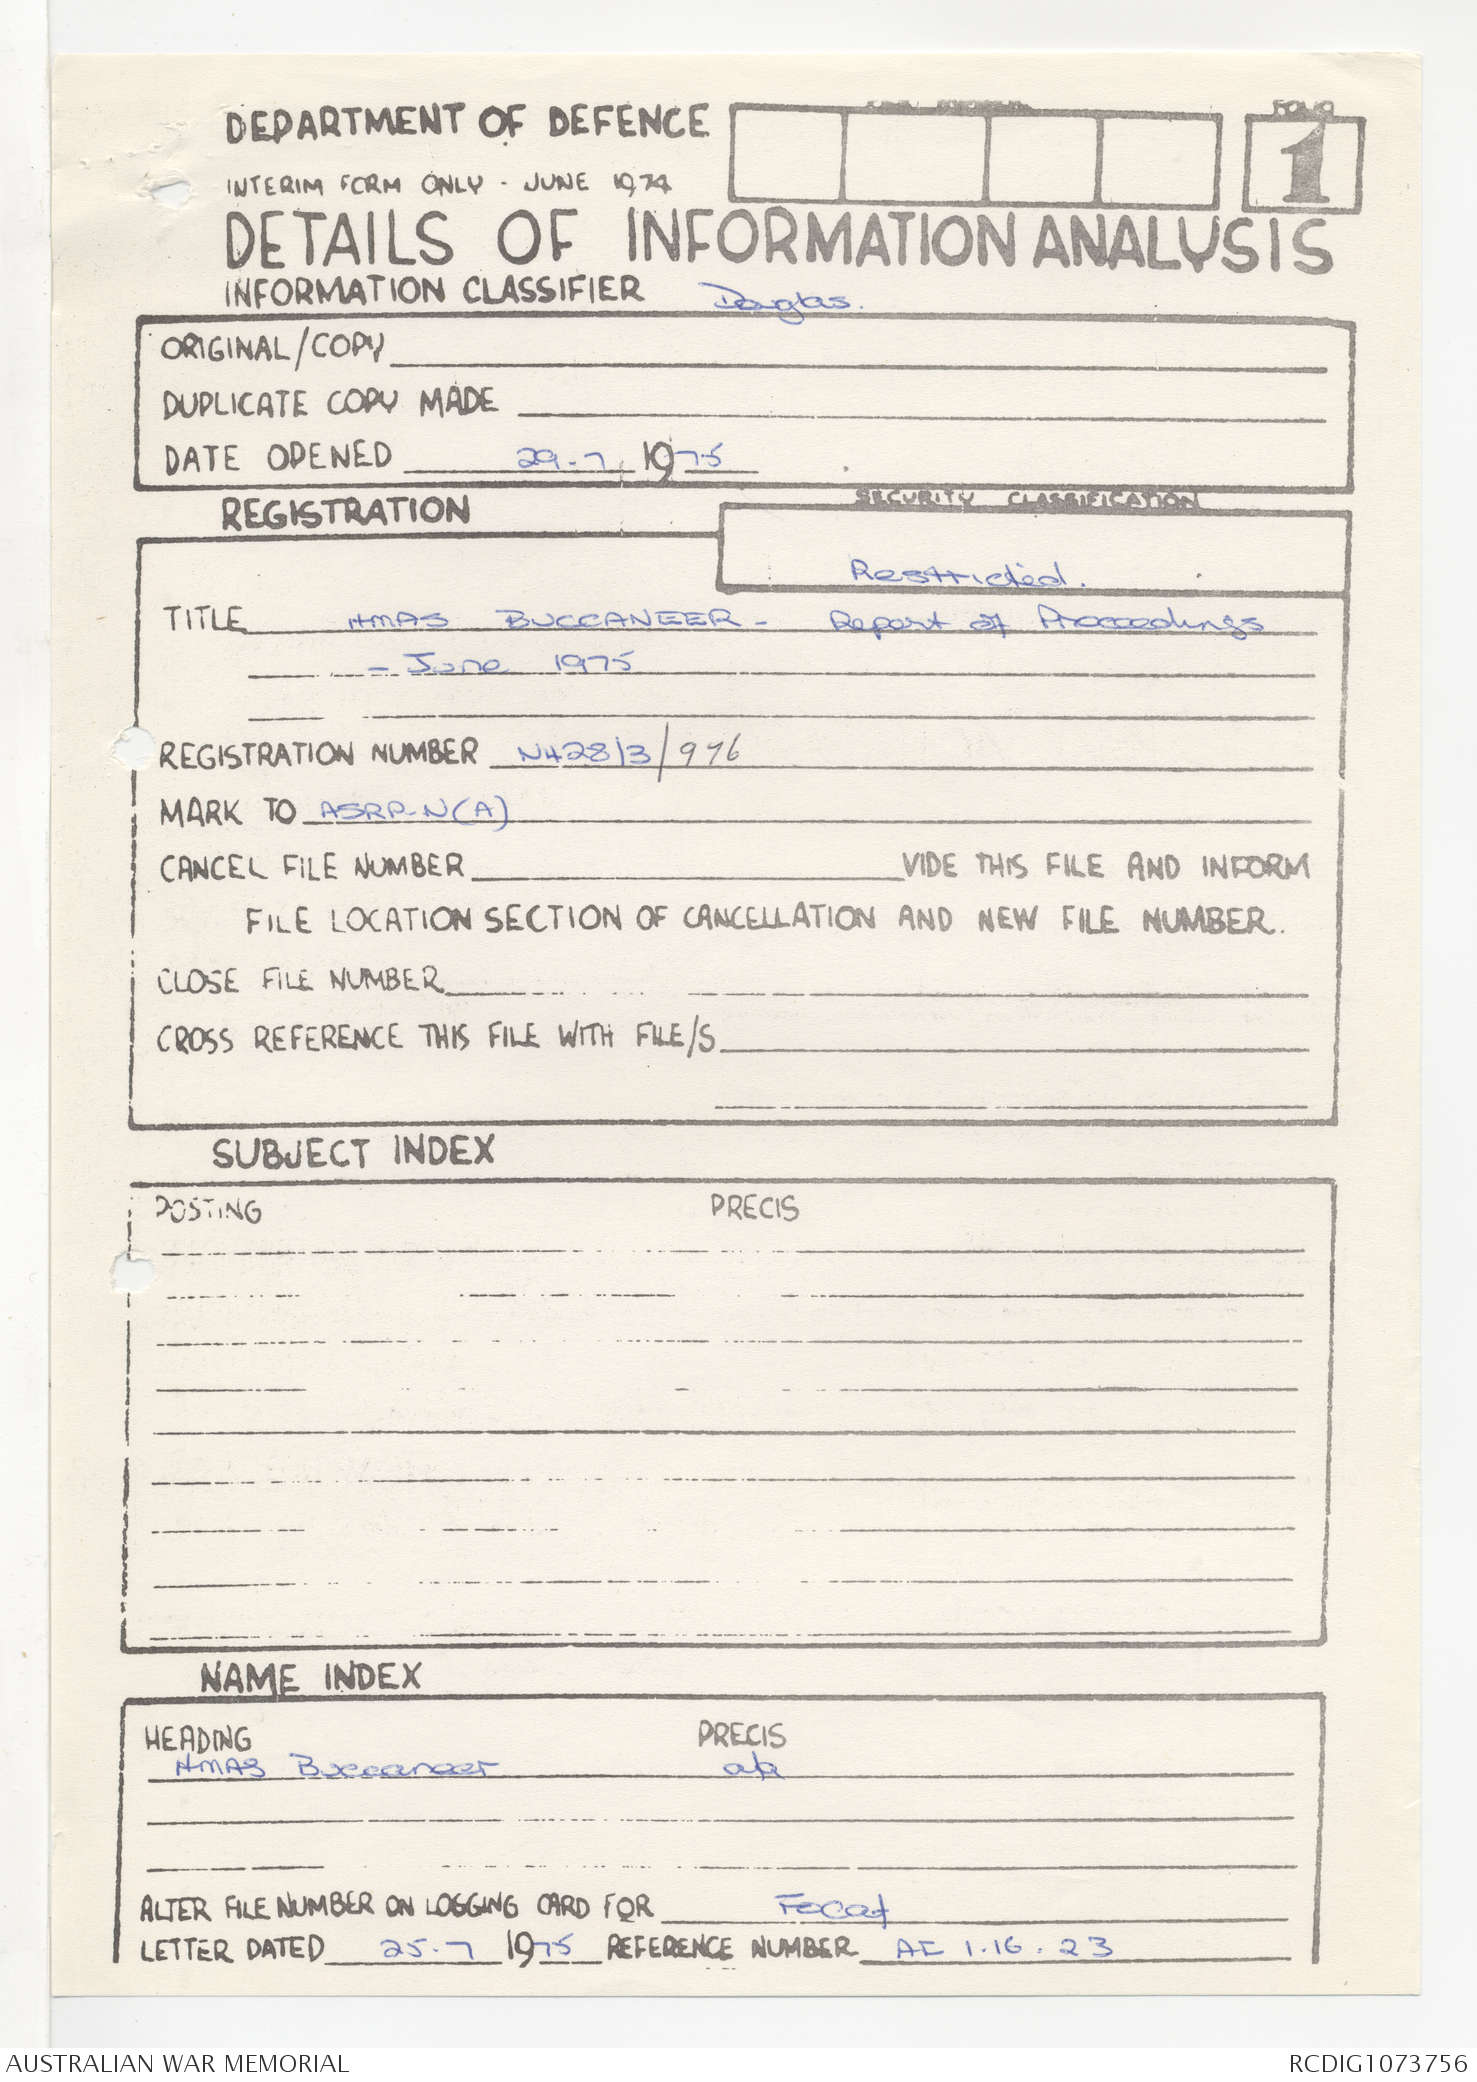 DEPARTMENT OF DEFENCE
FOLIO
1
INTERIM FORM ONLY - JUNE 1974
DETAILS OF INFORMATION ANALYSIS
INFORMATION CLASSIFIER Douglas.
ORIGINAL/COPY
DUPLICATE COPY MADE
DATE OPENED 29-7 1975
REGISTRATION
SECURITY CLASSIFICATION
Restricted.
TITLE HMAS BUCCANEER - Report of Proceedings
- June 1975
REGISTRATION NUMBER N428/3/976
MARK TO ASRP-N(A)
CANCEL FILE NUMBER VIDE THIS FILE AND INFORM
FILE LOCATION SECTION OF CANCELLATION AND NEW FILE NUMBER.
CLOSE FILE NUMBER
CROSS REFERENCE THIS FILE WITH FILE/S
SUBJECT INDEX
POSTING PRECIS
NAME INDEX
HEADING PRECIS
HMAS Buccaneer a/a
ALTER FILE NUMBER ON LOGGING CARD FOR Focaf
LETTER DATED 25-7 1975 REFERENCE NUMBER AF 1.16.23
AUSTRALIAN WAR MEMORIAL
RCDIG1073756